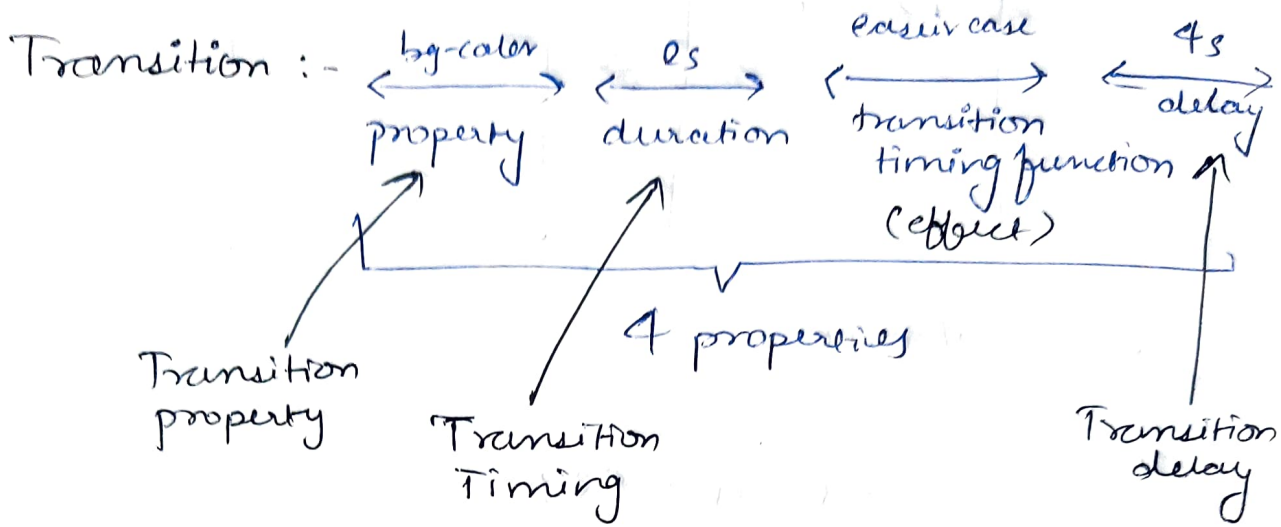 Transition :- bg-color 0s 4s
property duration transition delay
timing function
(effect)
4 properties
Transition
property
Transition
Timing
Transition
delay